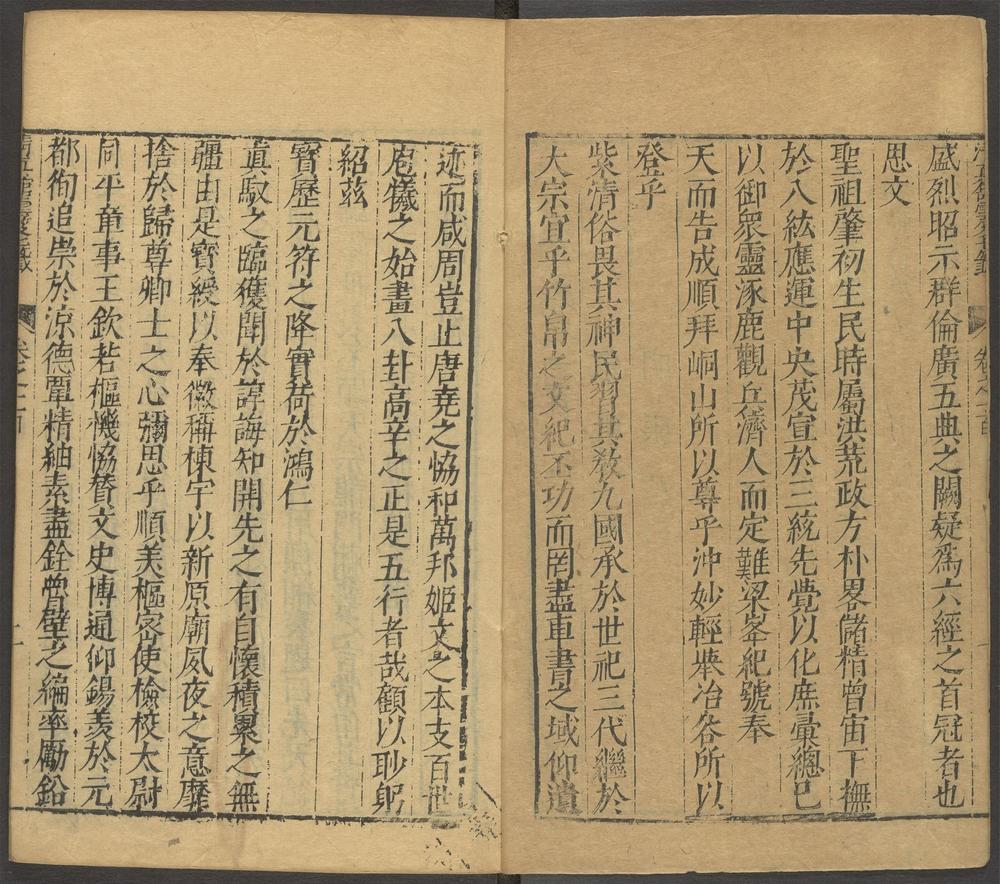 盛烈昭示群倫廣五典之闕疑爲六經之首冠者也
思文
聖祖肇初生民時屬洪荒政方朴畧儲精曾宙下撫
於八紘應運中央茂宣於三統先覺以化庶彙總己
以御衆靈涿鹿觀兵濟人而定難梁峯紀號奉
天而告成順拜峒山所以尊乎沖妙輕舉冶谷所以
登乎
紫清俗畏其神民習其教九國承於世祀三代繼於
大宗宜乎竹帛之文紀丕功而罔盡車書之域仰遺
迹而咸周豈止唐堯之恊和萬邦姬文之本支百世
庖犧之始畫八卦高辛之正是五行者哉顧以眇躬
紹茲
寶歷元符之降實荷於鴻仁
真馭之臨獲聞於諄誨知開先之有自懷積累之無
疆由是寶綬以奉徽稱棟宇以新原廟夙夜之意靡
捨於歸尊卿士之心彌思乎順美樞密使檢校太尉
同平章事王欽若樞機恊贊文史博通仰錫羨於元
都徇追崇於涼德覃精紬素盡銓曾壁之編率勵鉛